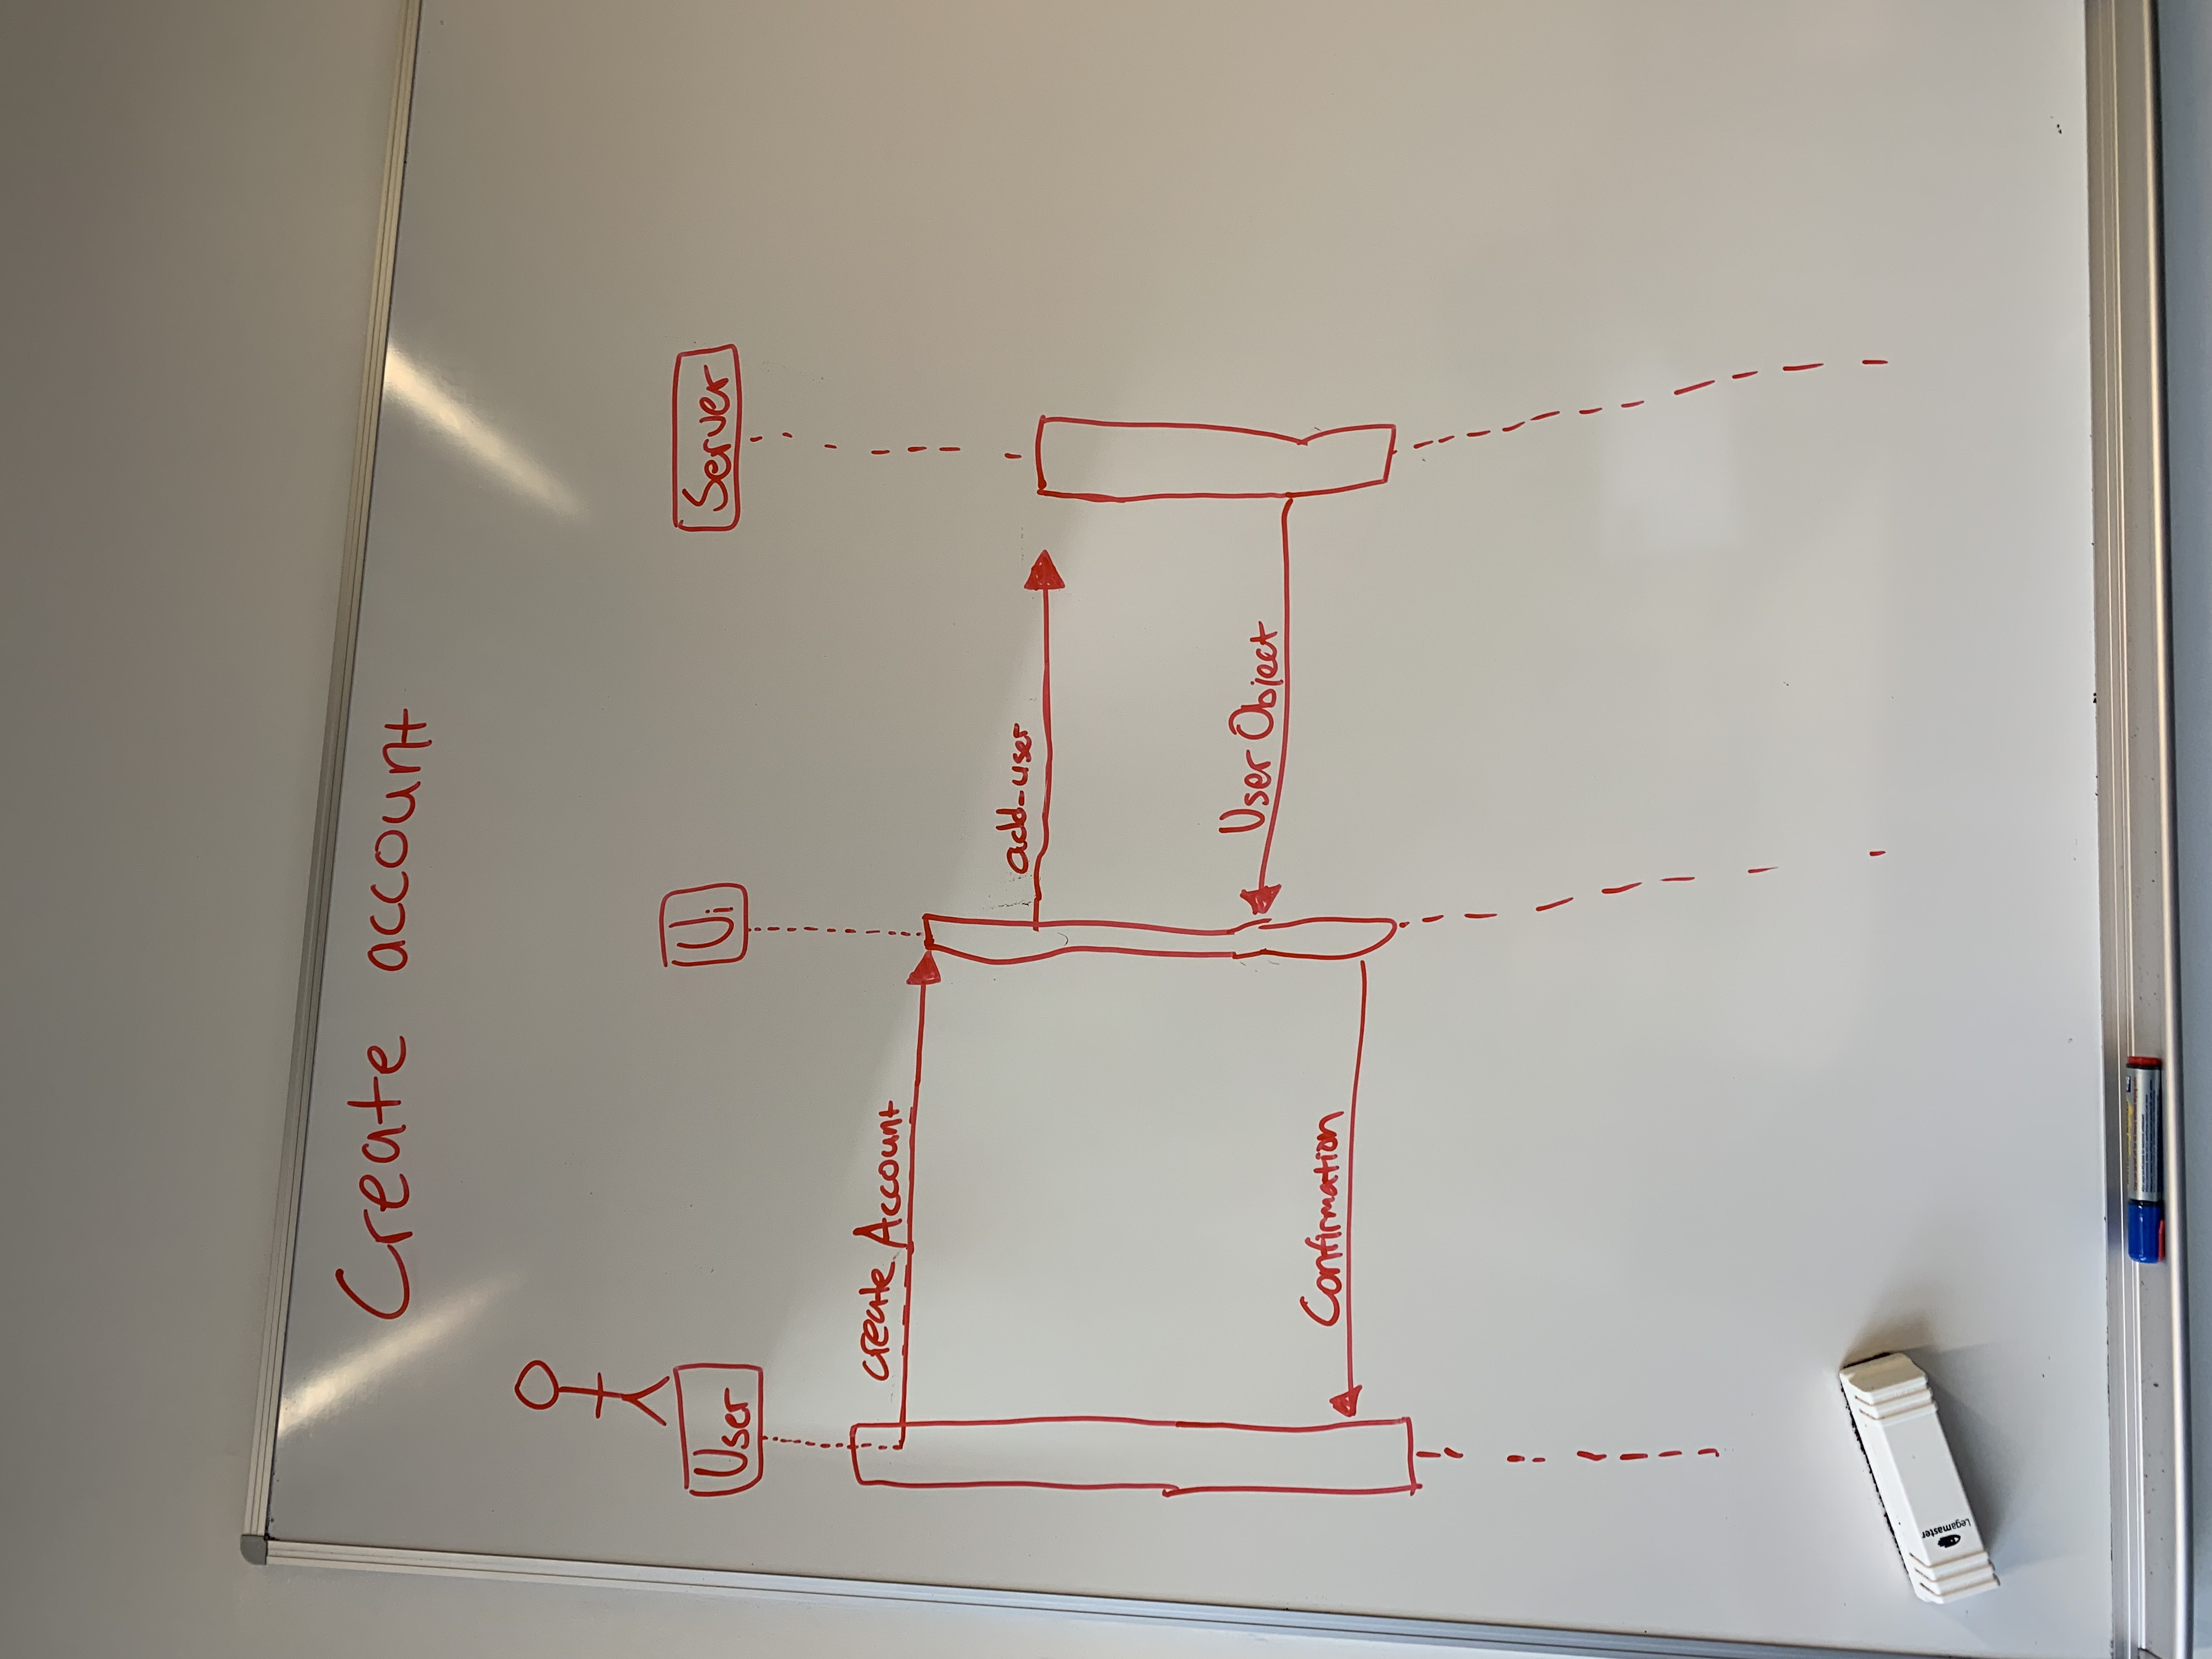 Create account
User
Ui
Server
create Account
add-user
User Object
Confirmation
Legamaster